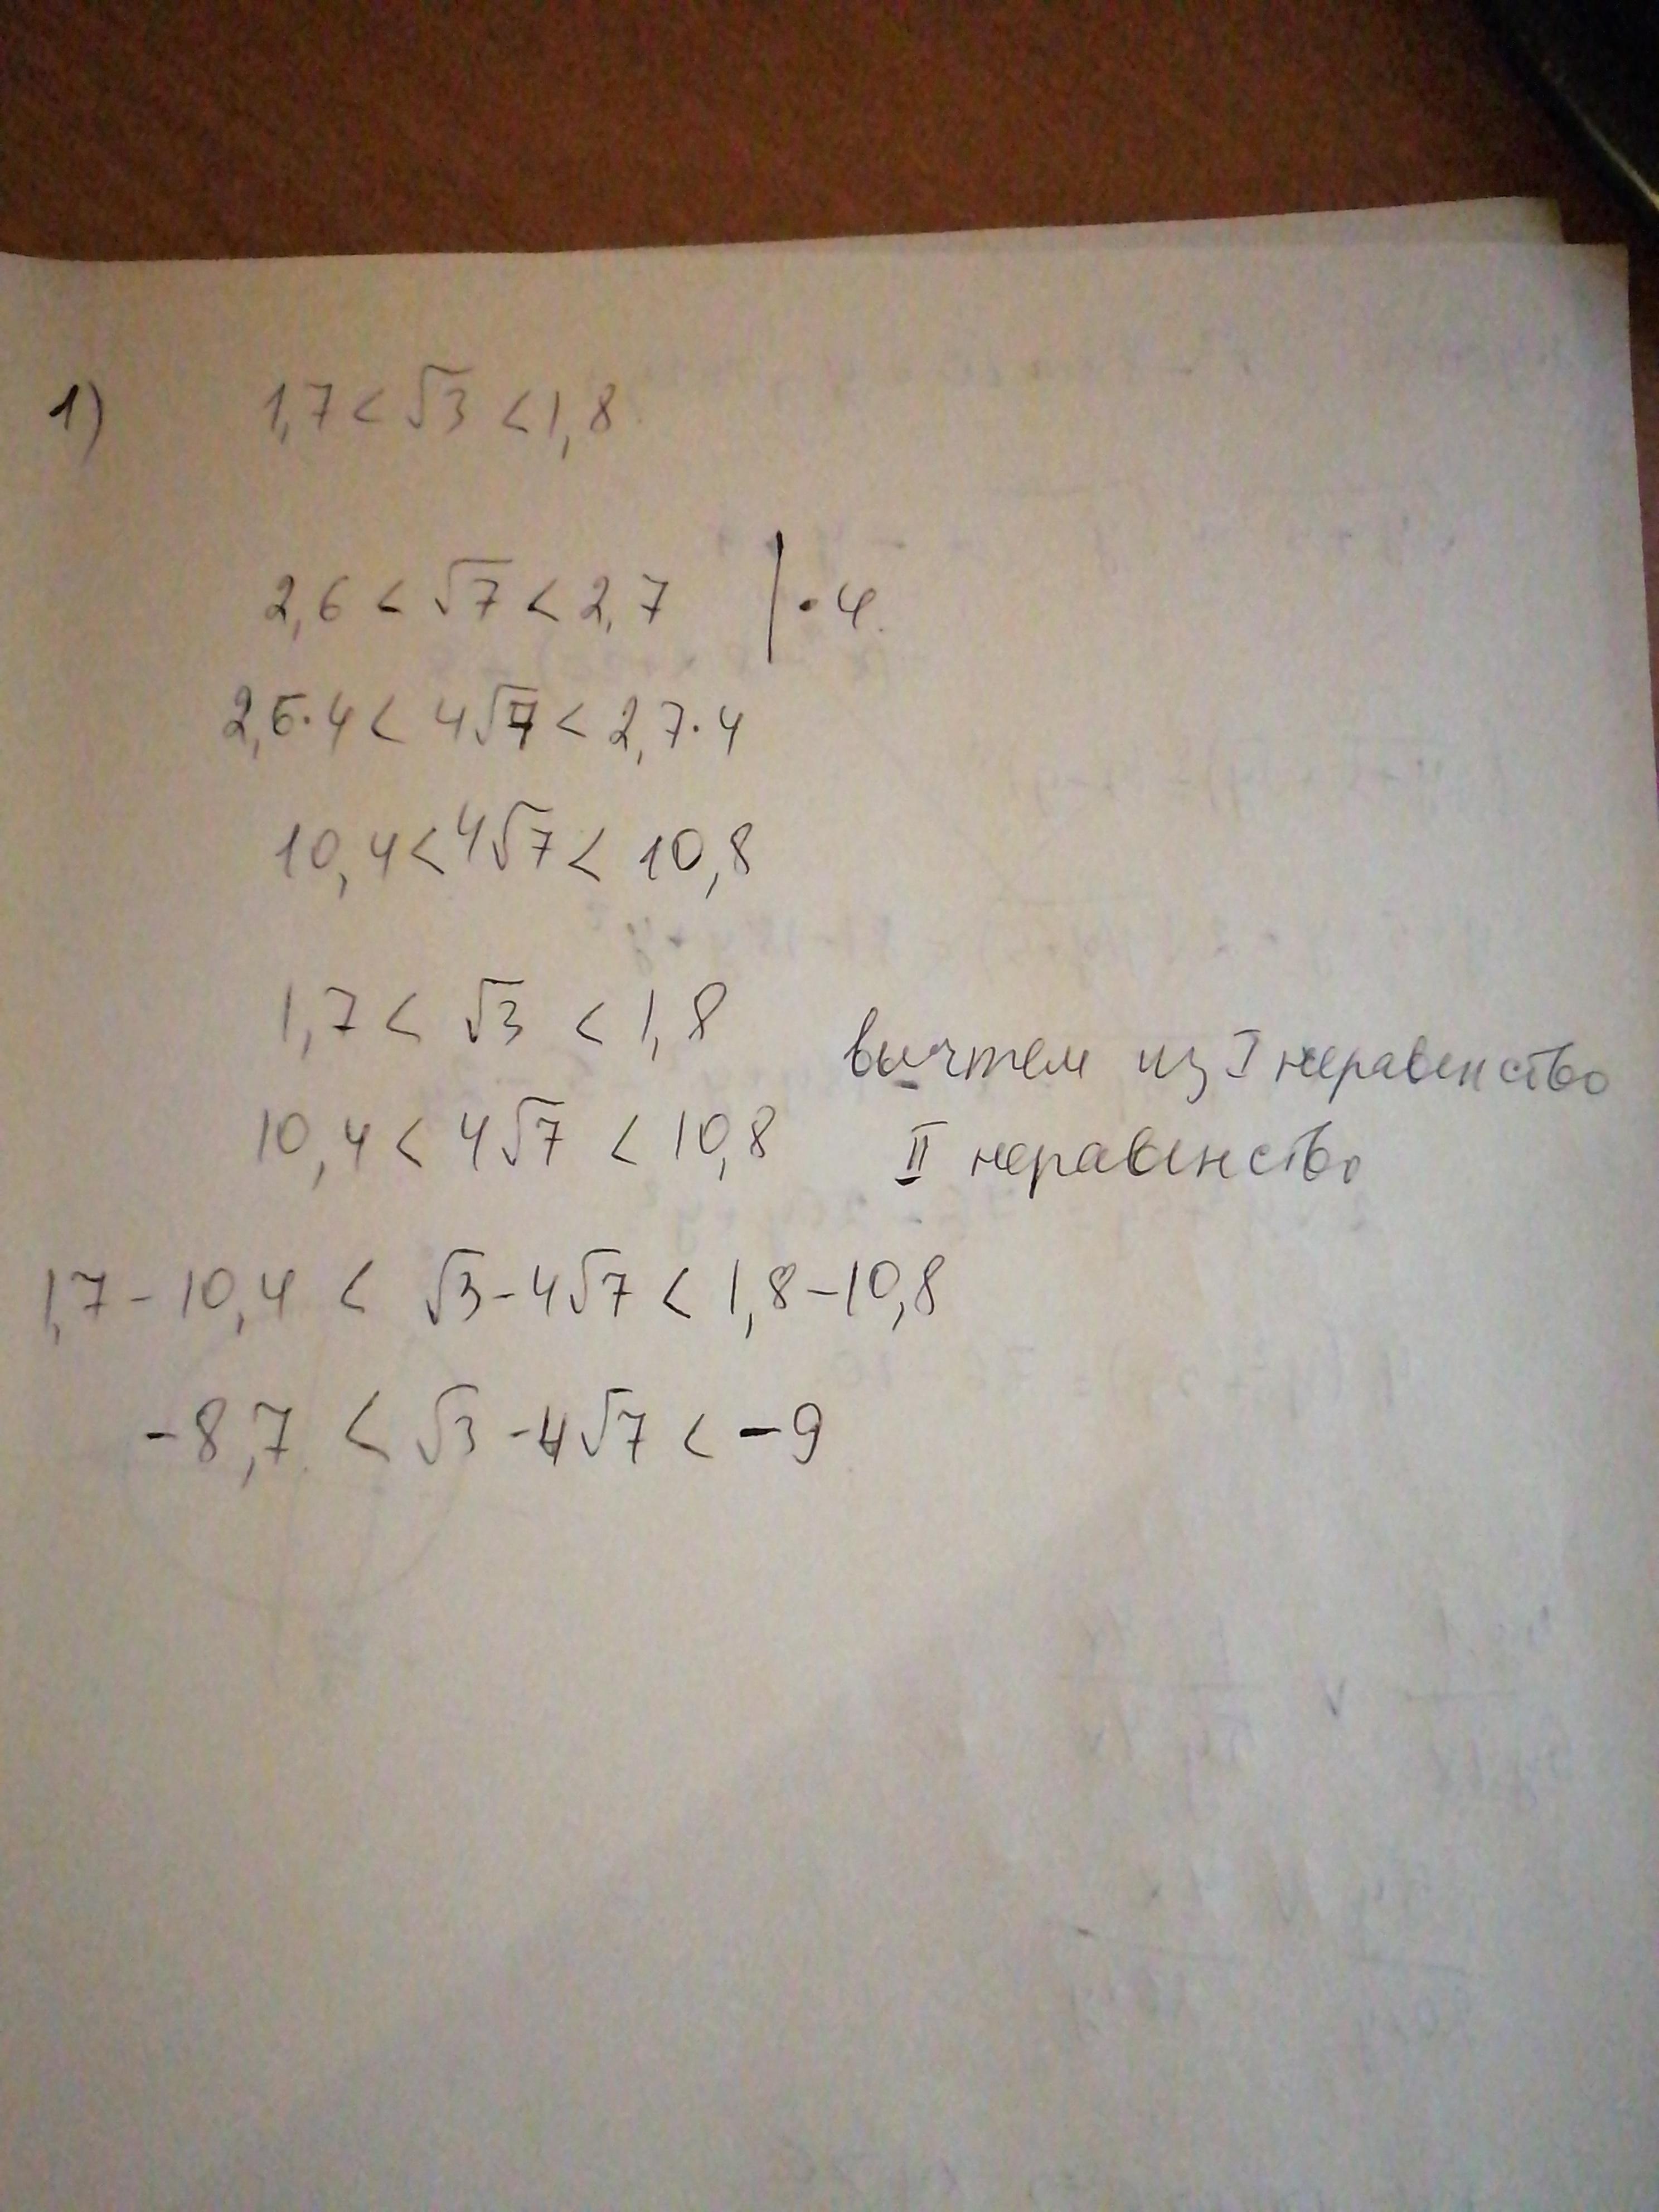 1) 1,7 < √3 < 1,8
2,6 < √7 < 2,7 | · 4
2,6·4 < 4√7 < 2,7·4
10,4 < 4√7 < 10,8
1,7 < √3 < 1,8 вычтем из I неравенство
10,4 < 4√7 < 10,8 II неравенство
1,7 - 10,4 < √3 - 4√7 < 1,8 - 10,8
-8,7 < √3 - 4√7 < -9